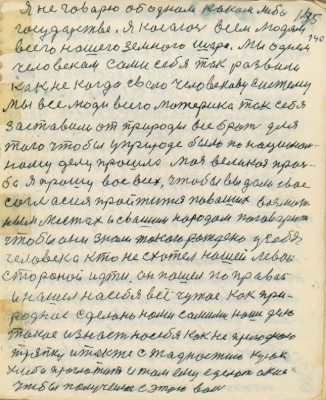 Я не говарю ободном каком либо 195
государстве. Я косаюсь всем людям 140
всего нашего земного шара. Мы одним
человекам сами себя так развили
как не когда свого человекаву систему
Мы все люди всего мотерика так себя
заставили от природы все брат для
того чтобы в природе было по национал
ному делу прошло моя великоя прозь
ба я прошу вас всех, чтобы вы дали свое
согласия пройтится повашых возмож
ным местах и свашим народам поговарит
чтобы они знали такого рождено усебя
человека кто не схотел нашей левой
стороной идти, он пошел поправай
и нашел насебя всё чужое как при
родное сделано нами самими наши дело
такое изност насебя как не пригодного
тряпку итакже с жадностию кусок
хлеба проглотит итам ему сделал
чтобы получено с этого вам